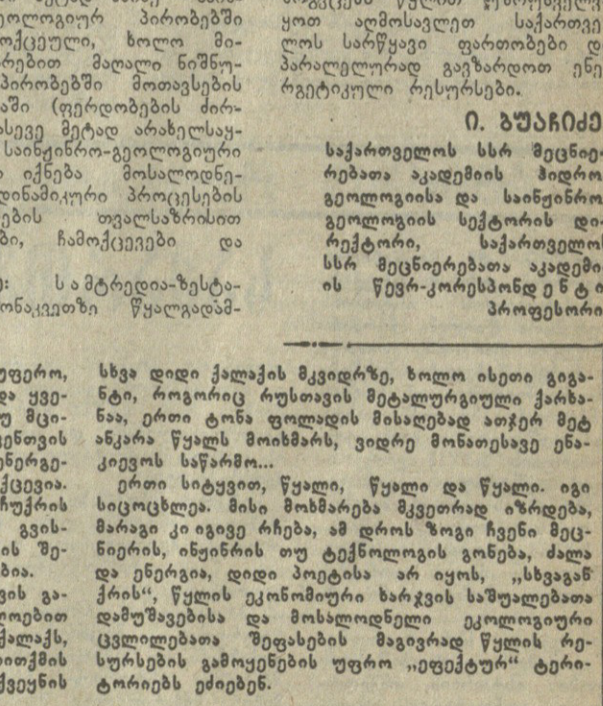 ეოლოგიურ პირობებში
ოქცეული, ხოლო მი-
რებით მაღალი ნიშნუ-
პირობებში მოთავსების
აში (ფერდობების ძირ-
ასევე მეტად არახელსაყ-
საინჟინრო-გეოლოგიური
იქნება მოსალოდნე-
დინამიკური პროცესების
ების თვალსაზრისით
ბი, ჩამოქცევები და
ე: სამტრედია-ზესტა-
ონაკვეთზე წყალგადამ-
ყოთ აღმოსავლეთ საქართვე
ლოს სარწყავი ფართობები დ
პარალელურად გავზარდოთ ენე
რგეტიკული რესურსები.
ი. ბუაჩიძე
საქართველოს სსრ მეცნიე-
რებათა აკადემიის ჰიდრო
გეოლოგიისა და საინჟინრო
გეოლოგიის სექტორის დი-
რექტორი, საქართველო
სსრ მეცნიერებათა აკადემი
ის წევრ-კორესპონდენტი
პროფესორი
უფერო,
და ყვე-
უ მცი-
ენთვის
ენერგე-
ქცევია.
ჩუქრის
გვის-
ის შე-
ბია.
ვის გა-
ოებით
ქალაქს,
ითქმის
ქვეყნის
სხვა დიდი ქალაქის მკვიდრზე, ხოლო ისეთი გიგა-
ნტი, როგორიც რუსთავის მეტალურგიული ქარხა-
ნაა, ერთი ტონა ფოლადის მისაღებად ათჯერ მეტ
ანკარა წყალს მოიხმარს, ვიდრე მონათესავე ენა-
კიევოს საწარმო...
ერთი სიტყვით, წყალი, წყალი და წყალი. იგი
სიცოცხლეა. მისი მოხმარება მკვეთრად იზრდება,
მარაგი კი იგივე რჩება, ამ დროს ზოგი ჩვენი მეც-
ნიერის, ინჟინრის თუ ტექნოლოგის გონება, ძალა
და ენერგია, დიდი პოეტისა არ იყოს, „სხვაგან
ქრის“, წყლის ეკონომიური ხარჯვის საშუალებათა
დამუშავებისა და მოსალოდნელი ეკოლოგიური
ცვლილებათა შეფასების მაგივრად წყლის რე-
სურსების გამოყენების უფრო „ეფექტურ“ ტერი-
ტორიებს ეძიებენ.